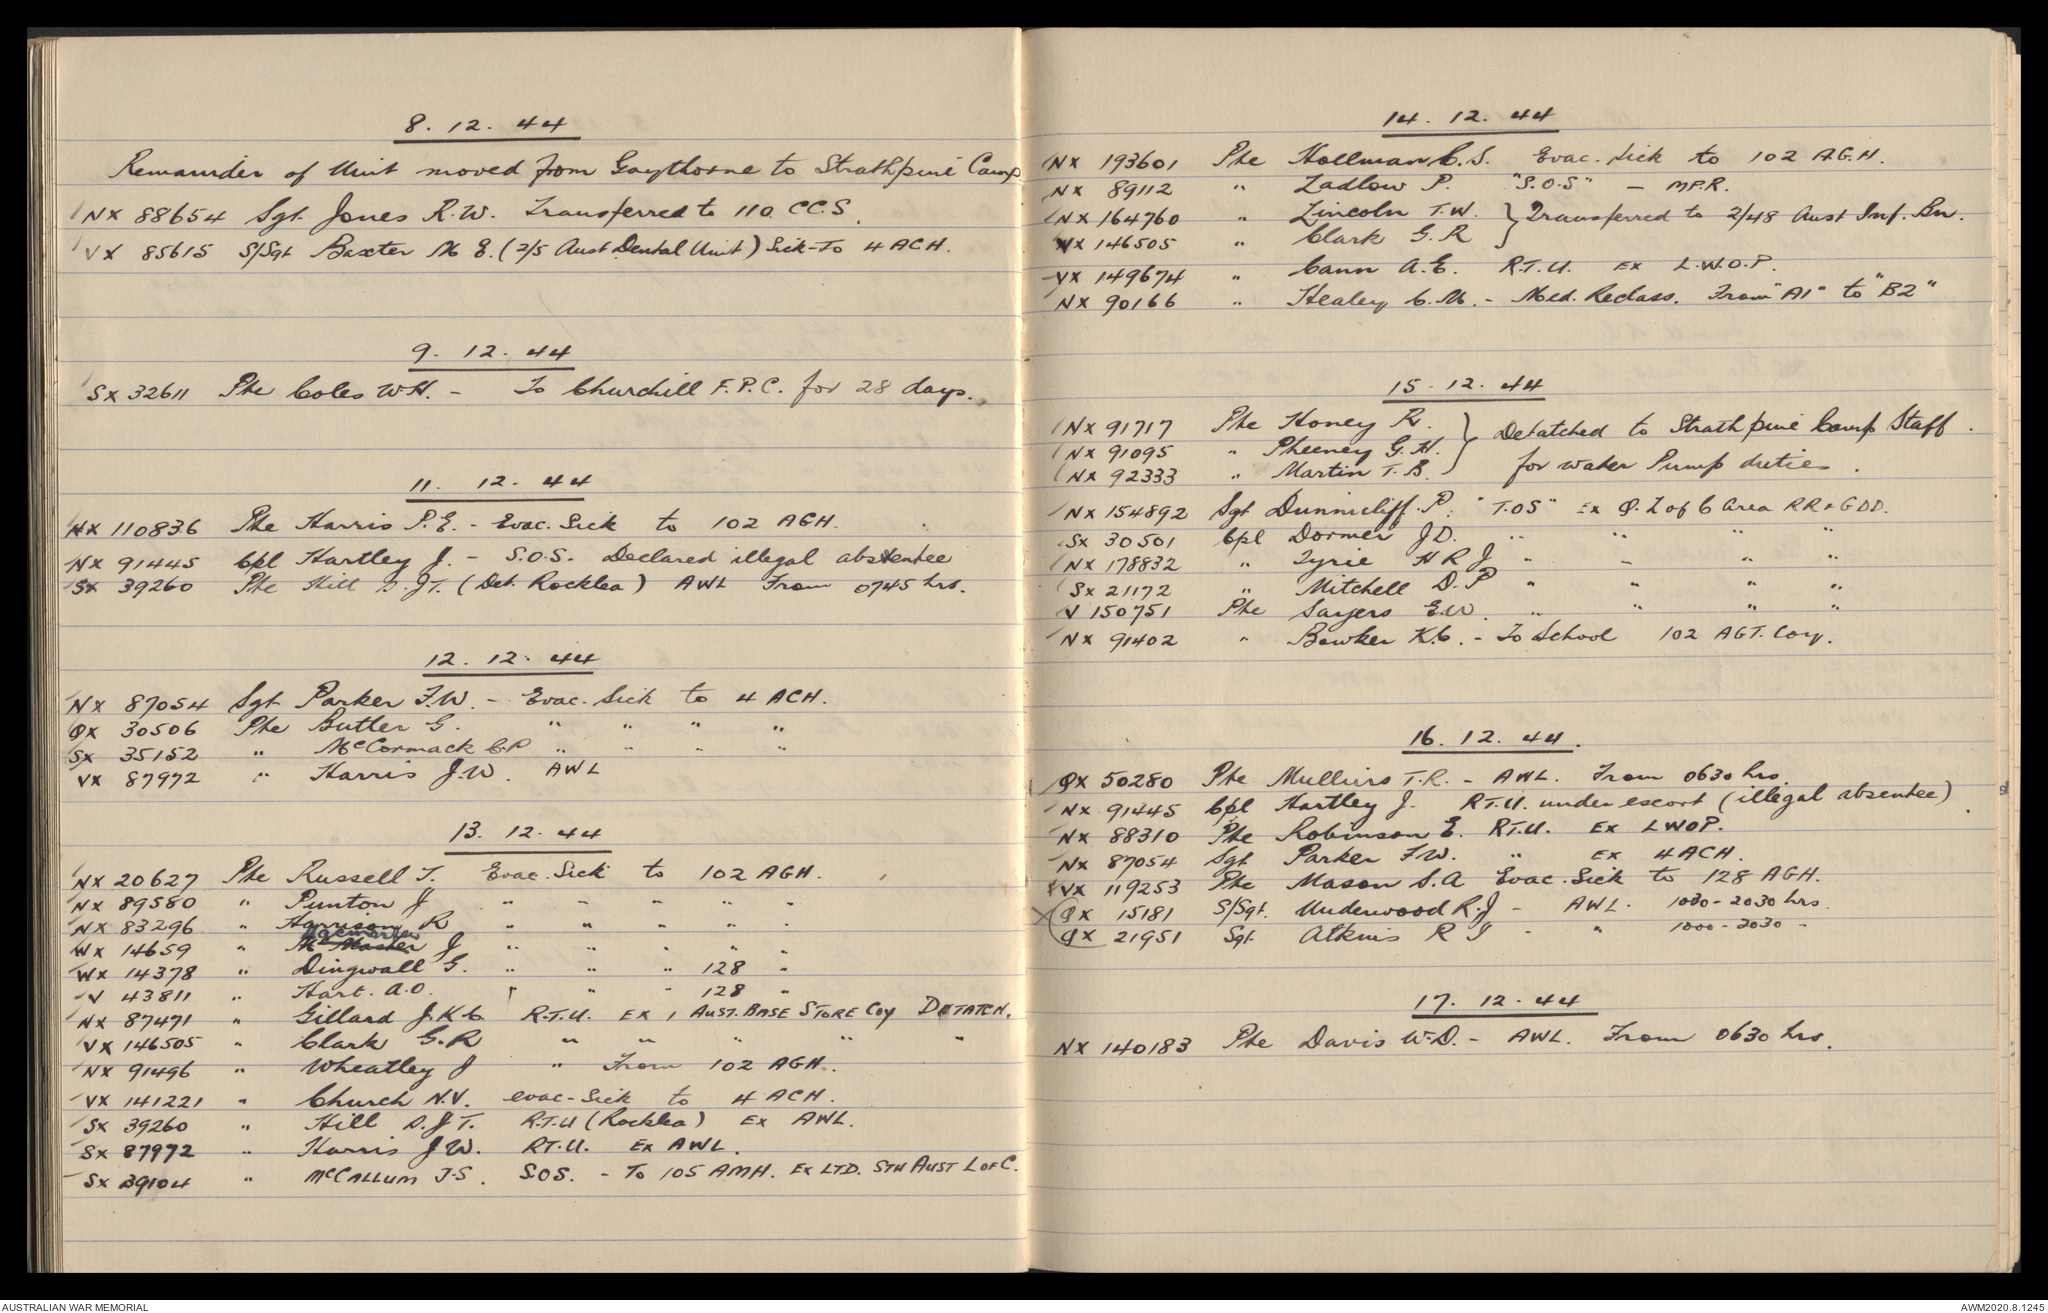 8. 12. 44
Remainder of Unit moved from Gaythorne to Strathpine Camp
NX 88654 Sgt Jones R.W. Transferred to 110 CCS.
VX 85615 S/Sgt Baxter M E. (2/5 Aust Dental Unit) Sick-To 4 ACH.
9. 12. 44
SX 32611 Pte Coles W.H. - To Churchill F.P.C. for 28 days.
11. 12. 44
NX 110836 Pte Harris P.E. - Evac. Sick to 102 AGH.
NX 91445 Cpl Hartley J. - S.O.S. Declared illegal absentee
SX 39260 Pte Hill D.J.T. (Det. Rocklea) AWL From 0745 hrs.
12. 12. 44
NX 87054 Sgt Parker F.W. - Evac. Sick to 4 ACH.
QX 30506 Pte Butler G. " " " "
SX 35152 " McCormack C.P " " " "
VX 87972 " Harris J.W. AWL
13. 12. 44
NX 20627 Pte Russell T. Evac. Sick to 102 AGH.
NX 89580 " Punton J " " " " "
NX 83296 " Harrison R " " " " "
WX 14659 " McMaster J " " " " "
WX 14378 " Dingwall G. " " " 128 "
V 43811 " Hart. A.O. " " " 128 "
NX 87471 " Gillard J.K.C R.T.U. EX 1 AUST. BASE STORE COY DETATCH.
VX 146505 " Clark G.R " " " " "
NX 91496 " Wheatley J " From 102 AGH.
VX 141221 " Church N.V. evac-Sick to 4 ACH.
SX 39260 " Hill D.J.T. R.T.U (Rocklea) EX AWL.
SX 87972 " Harris J.W. RT.U. EX AWL.
SX 39104 " McCALLUM J.S. S.O.S. - To 105 AMH. EX LTD. STH AUST L OF C.
14. 12. 44
NX 193601 Pte Hollman C.S. Evac. Sick to 102 A.G.H.
NX 89112 " Ladlow P. "S.O.S" - MP.R.
NX 164760 " Lincoln T.W. } Transferred to 2/48 Aust Inf. Bn.
VX 146505 " Clark G.R
VX 149674 " Cann A.E. R.T.U. EX L.W.O.P.
NX 90166 " Healey C.M. - Med. Reclass. From "A1" to "B2"
15. 12. 44
NX 91717 Pte Honey R. } Detatched to Strathpine Camp Staff.
NX 91095 " Pheeney G.H.
NX 92333 " Martin T.B. for water Pump duties.
NX 154892 Sgt Dunnicliff. P. "T.OS" EX Q. L of C Area RR & GDD.
SX 30501 Cpl Dormer J D. " " " "
NX 178832 " Tyrie H R J " " " "
SX 21172 " Mitchell D. P " " " "
V 150751 Pte Sayers E.W. " " " "
NX 91402 " Bowker K.C. - To School 102 AGT. Coy.
16. 12. 44.
QX 50280 Pte Mullins T.R. - AWL. From 0630 hrs.
NX 91445 Cpl Hartley J. RT.U. under escort (illegal absentee).
NX 88310 Pte Robinson E. RT.U. EX LWOP.
NX 87054 Sgt Parker F.W. " EX 4 ACH.
VX 119253 Pte Mason S.A Evac. Sick to 128 AGH.
QX 15181 S/Sgt. Underwood R.J - AWL. 1030 - 2030 hrs.
QX 21951 Sgt. Atkins R J - " 1000 - 2030 -
17. 12. 44
NX 140183 Pte Davis W.D. - AWL. From 0630 hrs.
AUSTRALIAN WAR MEMORIAL
AWM2020.8.1245